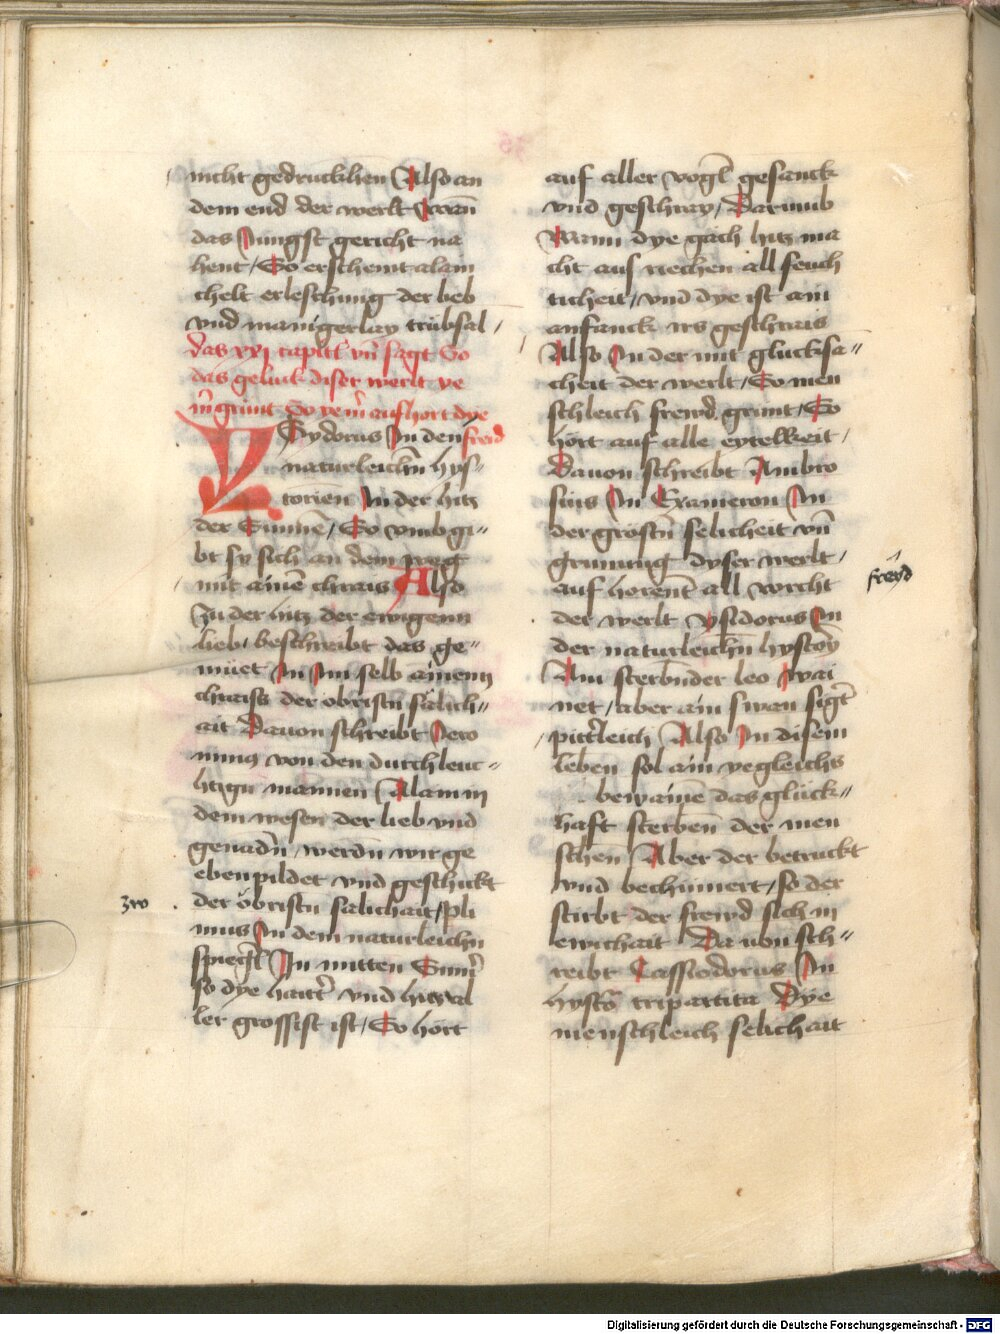 nicht gedrucklhen Also an
dem end der werlt Wan̄
das Jungst gericht na
hent / So erscheint alain
chelt erleschung der lieb
vnd manigerlay trübsal /
das xxj capitl vn̄ sagt So
das geluck diser werlt ye
So ye mer aufhort dye
freid
Ysydorus Jn den
naturleichn̄ hys⸗
torien Jn der hitz
der Sunnē / So vmbgi⸗
bt sy sich an dem weg
mit ainē chrais Also
Zu der hitz der ewigenn
lieb / beschreibt das ge⸗
müet Jn Jm selb ainenn
chraiss der öbristn̄ sälich⸗
ait Dauon schreibt Jero
nimus von den durchleuc⸗
htign mannen Alain in
dem wesen der lieb vnd
genadn̄ / werdn̄ wir ge
ebenpildet vnd geschickt
zwo
der öbristn̄ sälichait / pli
nius Jn dem naturleichn̄
spiegl̄ Jn mitten Sum̄
so dye haitt̄ vnd hitz al
ler grossist ist / So hört
auf aller vogl̄ gesanck
vnd geschray / Darumb
Wann dye gäch hitz ma
cht aus riechen all feuch
ticheit / vnd dye ist ain
anfanck irs geschrais
Also Jn der mit glücksā⸗
cheit der werlt / So men
schleich frewd grünt / So
hört auf alle eytelkeit /
Dauon schreibt Ambro
sius Jn Exameron Jn
der gröstn̄ selicheit vn̄
grunung dyser werlt /
freyd
auf horent all vorcht
der werlt ysidorus Jn
der naturleichn̄ hystory
Ain sterbn̄der leo wai
net / aber ain swan sigt̄
pittleich Also Jn disem
leben sol ain yegleichs
bewainē das glück⸗
haft sterben̄ der men
schen Aber der betruckt
vnd bechümert / so der
stirbt der frewd sich in
ewichait Dauon sch⸗
reibt Cassiodorus Jn
hystō tripartita Dye
menschleich selichait
Digitalisierung gefördert durch die Deutsche Forschungsgemeinschaft - DFG